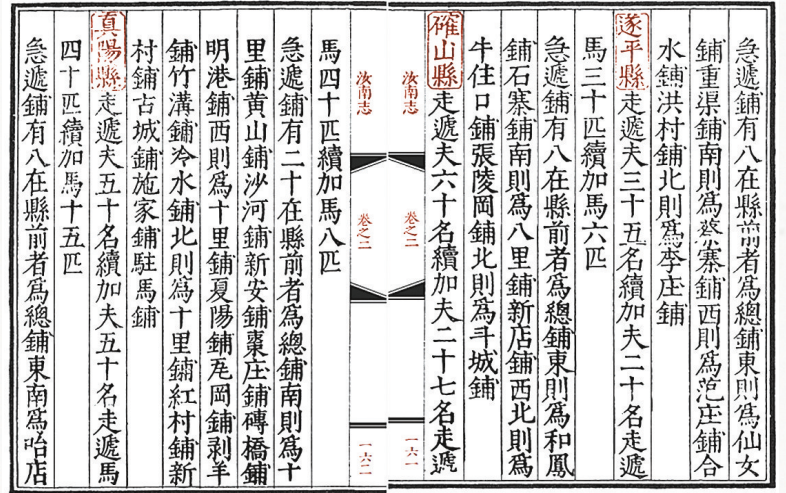 急遞鋪有八在縣前者爲總鋪東則爲仙女
鋪重渠鋪南則爲蔡寨鋪西則爲范庄鋪合
水鋪洪村鋪北則爲李庄鋪
遂平縣走遞夫三十五名續加夫二十名走遞
馬三十匹續加馬六匹
急遞鋪有八在縣前者爲總鋪東則爲和鳳
鋪石寨鋪南則爲八里鋪新店鋪西北則爲
牛住口鋪張陵岡鋪北則爲斗城鋪
確山縣走遞夫六十名續加夫二十七名走遞
汝南志
卷之二
一六一
汝南志
卷之二
一六二
馬四十匹續加馬八匹
急遞鋪有二十在縣前者爲總鋪南則爲十
里鋪黄山鋪沙河鋪新安鋪棗庄鋪磚橋鋪
明港鋪西則爲十里鋪夏陽鋪瓦岡鋪剥羊
鋪竹溝鋪冷水鋪北則爲十里鋪紅村鋪新
村鋪古城鋪施家鋪駐馬鋪
真陽縣走遞夫五十名續加夫五十名走遞馬
四十匹續加馬十五匹
急遞鋪有八在縣前者爲總鋪東南爲咍店